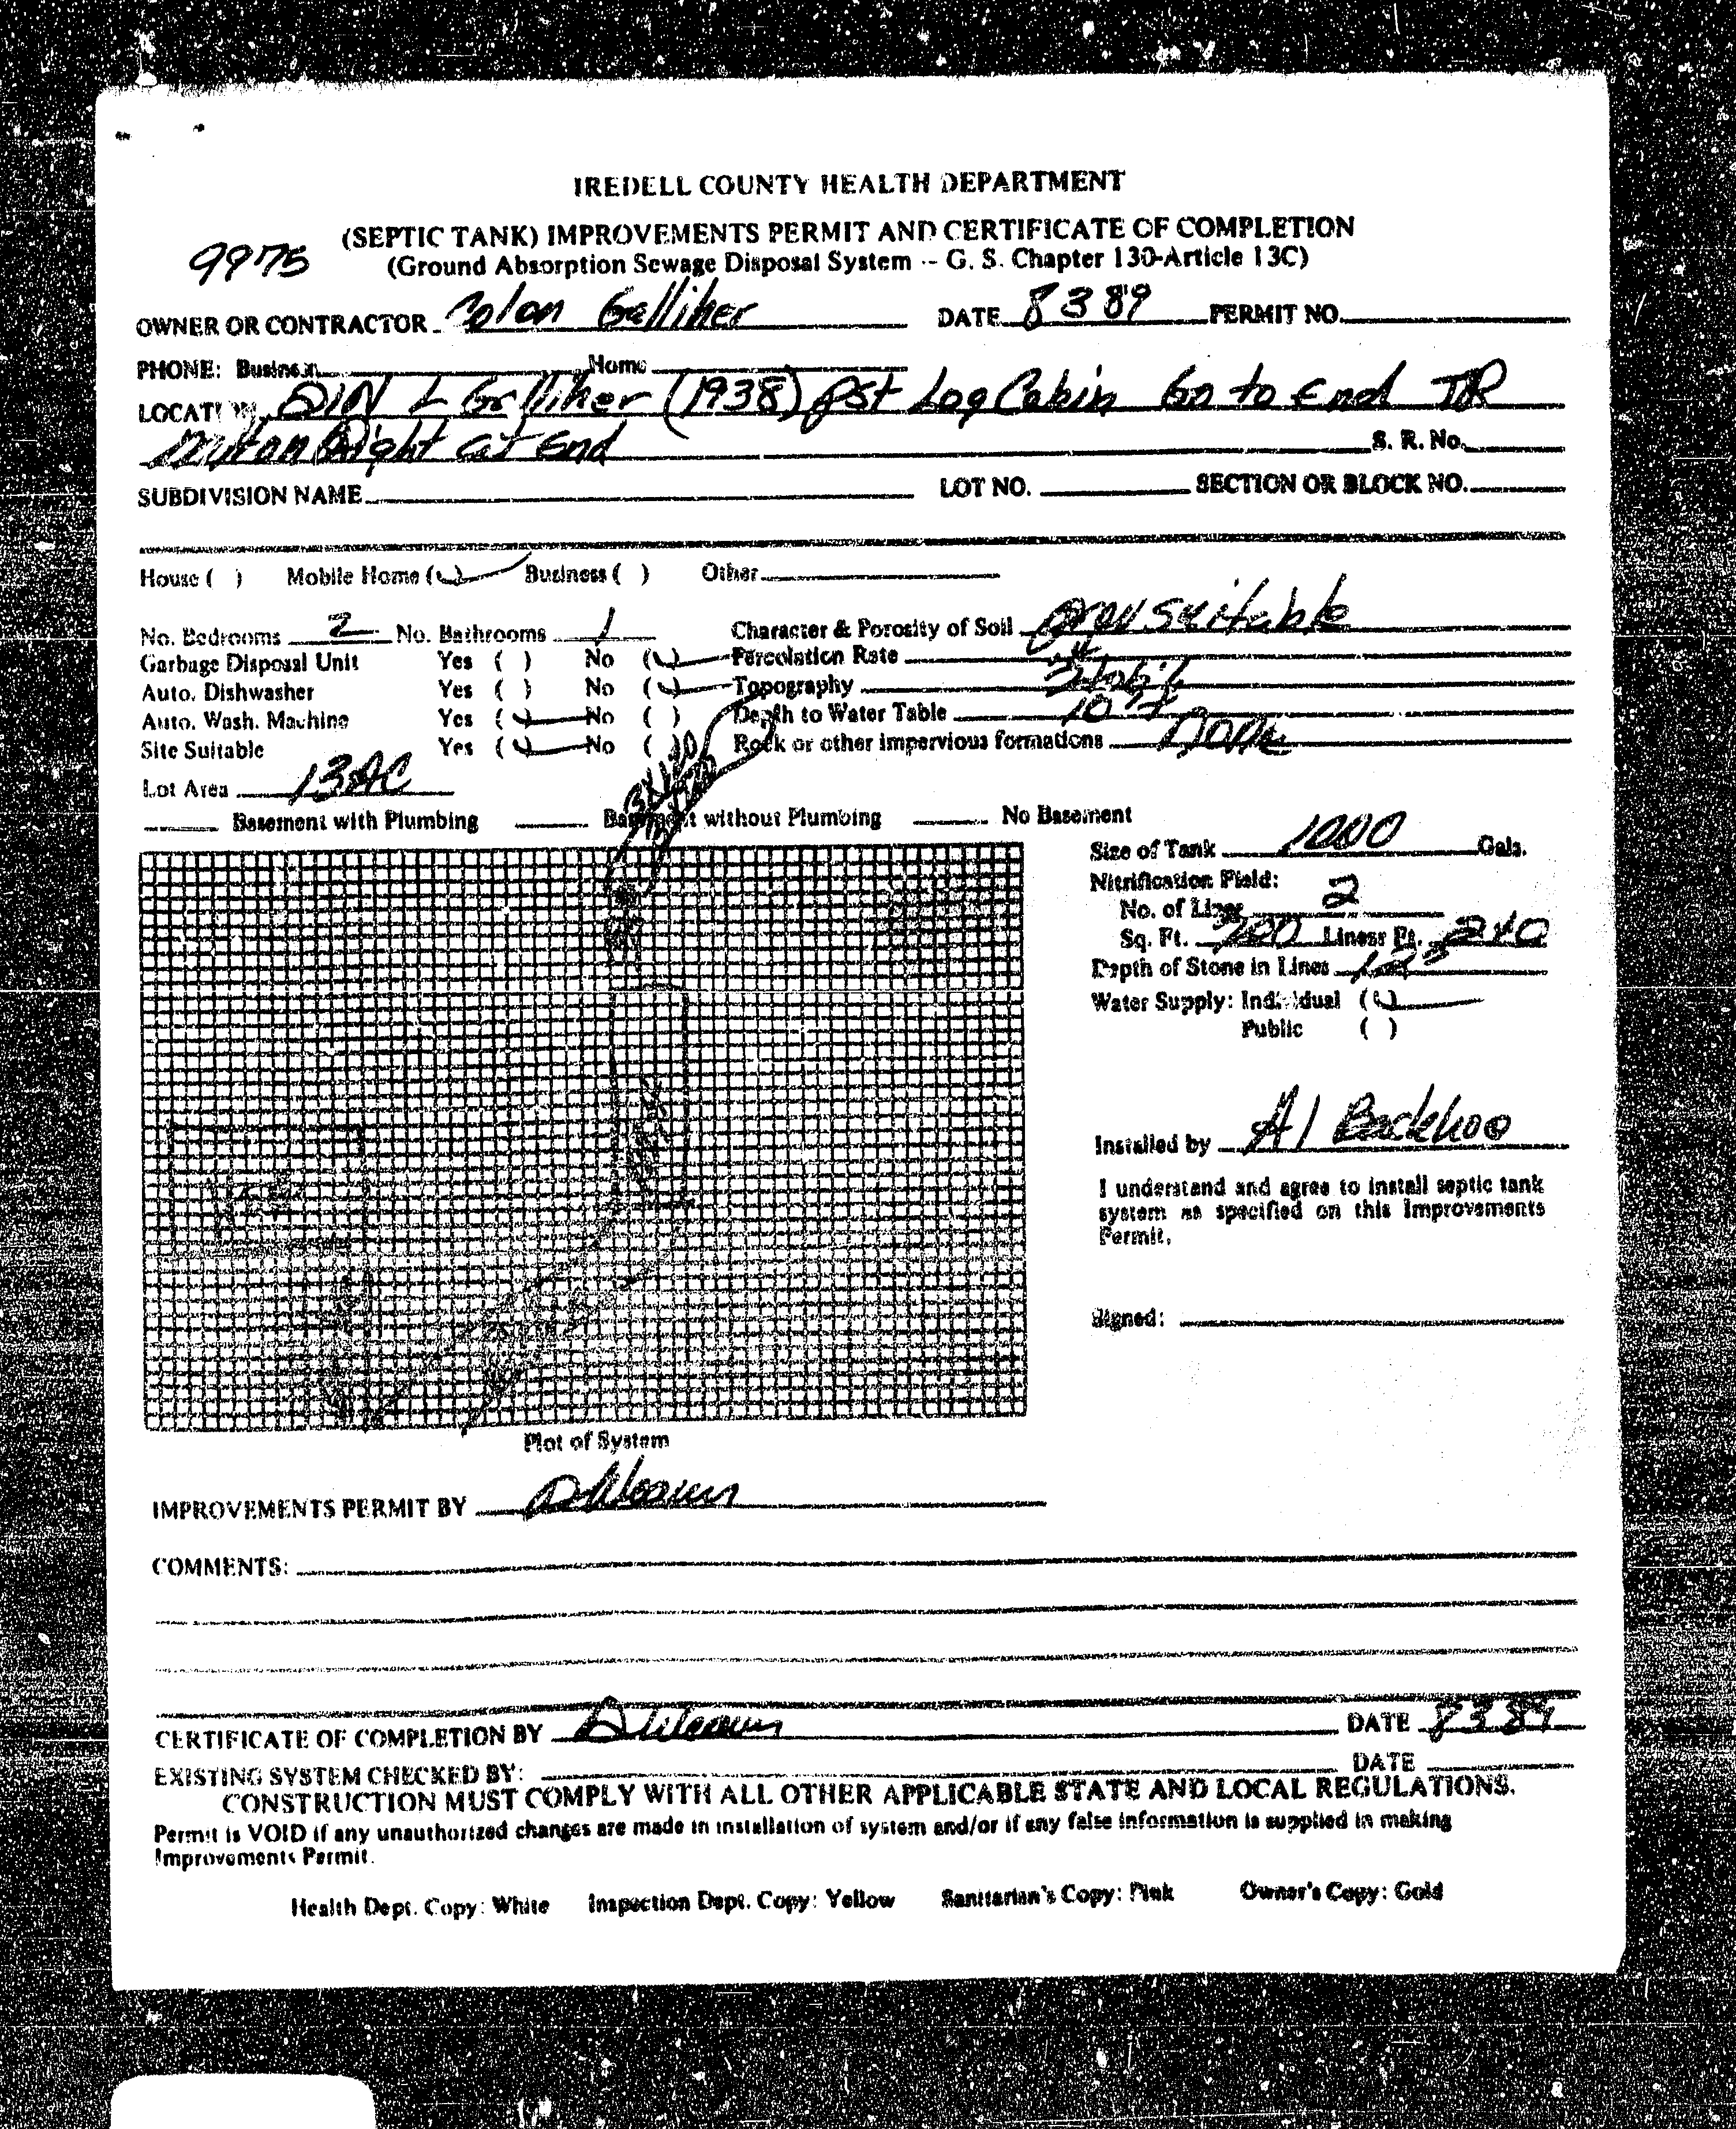 IREDELL COUNTY HEALTH DEPARTMENT
(SEPTIC TANK) IMPROVEMENTS PERMIT AND CERTIFICATE OF COMPLETION
9975 (Ground Absorption Sewage Disposal System -- G. S. Chapter 130-Article 13C)
OWNER OR CONTRACTOR Colon Galliher DATE 8 3 89 PERMIT NO.
PHONE: Business Home
LOCATION 21N L Galliher (1938) pst Log Cabin Go to End TR
Right at End S. R. No.
SUBDIVISION NAME LOT NO. SECTION OR BLOCK NO.
House ( ) Mobile Home (✓) Business ( ) Other
No. Bedrooms 2 No. Bathrooms 1 Character & Porosity of Soil Prov Suitable
Garbage Disposal Unit Yes ( ) No (✓) Percolation Rate
Auto. Dishwasher Yes ( ) No (✓) Topography
Auto. Wash. Machine Yes (✓) No ( ) Depth to Water Table 10
Site Suitable Yes (✓) No ( ) Rock or other impervious formations None
Lot Area 13 AC
Basement with Plumbing Basement without Plumbing No Basement
Size of Tank 1000 Gals.
Nitrification Field:
No. of Lines 2
Sq. Ft. 720 Linear Ft. 240
Depth of Stone in Lines
Water Supply: Individual (✓)
Public ( )
Installed by A1 Backhoe
I understand and agree to install septic tank
system as specified on this Improvements
Permit.
Signed:
Plot of System
IMPROVEMENTS PERMIT BY
COMMENTS:
CERTIFICATE OF COMPLETION BY DATE 8 3 89
EXISTING SYSTEM CHECKED BY: DATE
CONSTRUCTION MUST COMPLY WITH ALL OTHER APPLICABLE STATE AND LOCAL REGULATIONS.
Permit is VOID if any unauthorized changes are made in installation of system and/or if any false information is supplied in making
Improvements Permit.
Health Dept. Copy: White Inspection Dept. Copy: Yellow Sanitarian's Copy: Pink Owner's Copy: Gold